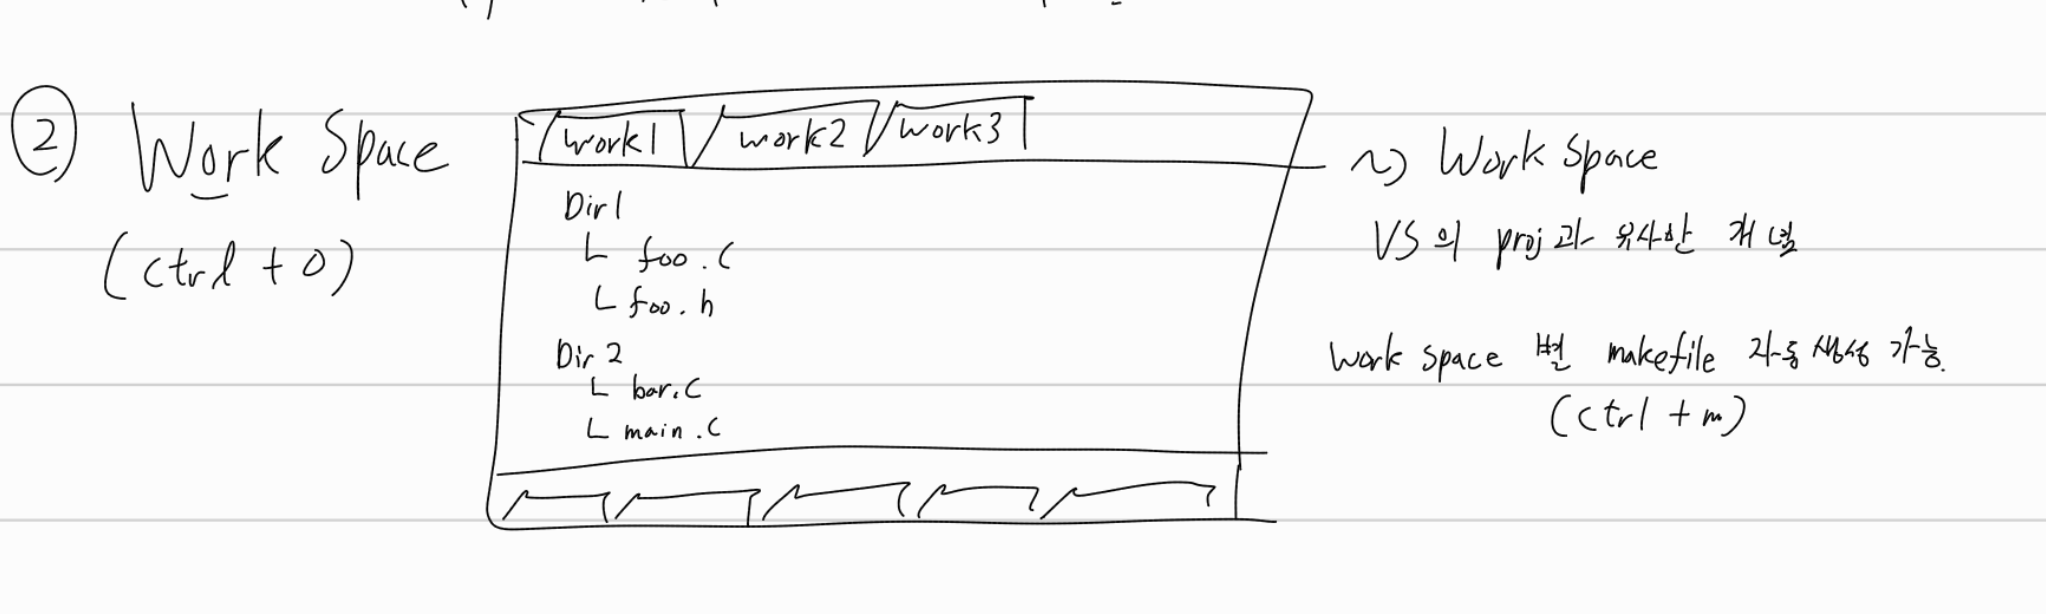 ② Work Space
(ctrl + O)
work1 work2 work3
Dir1
ㄴ foo.c
ㄴ foo.h
Dir 2
ㄴ bar.c
ㄴ main.c
~> Work Space
VS의 proj과 유사한 개념
Work Space 별 makefile 자동생성 가능.
(ctrl + m)